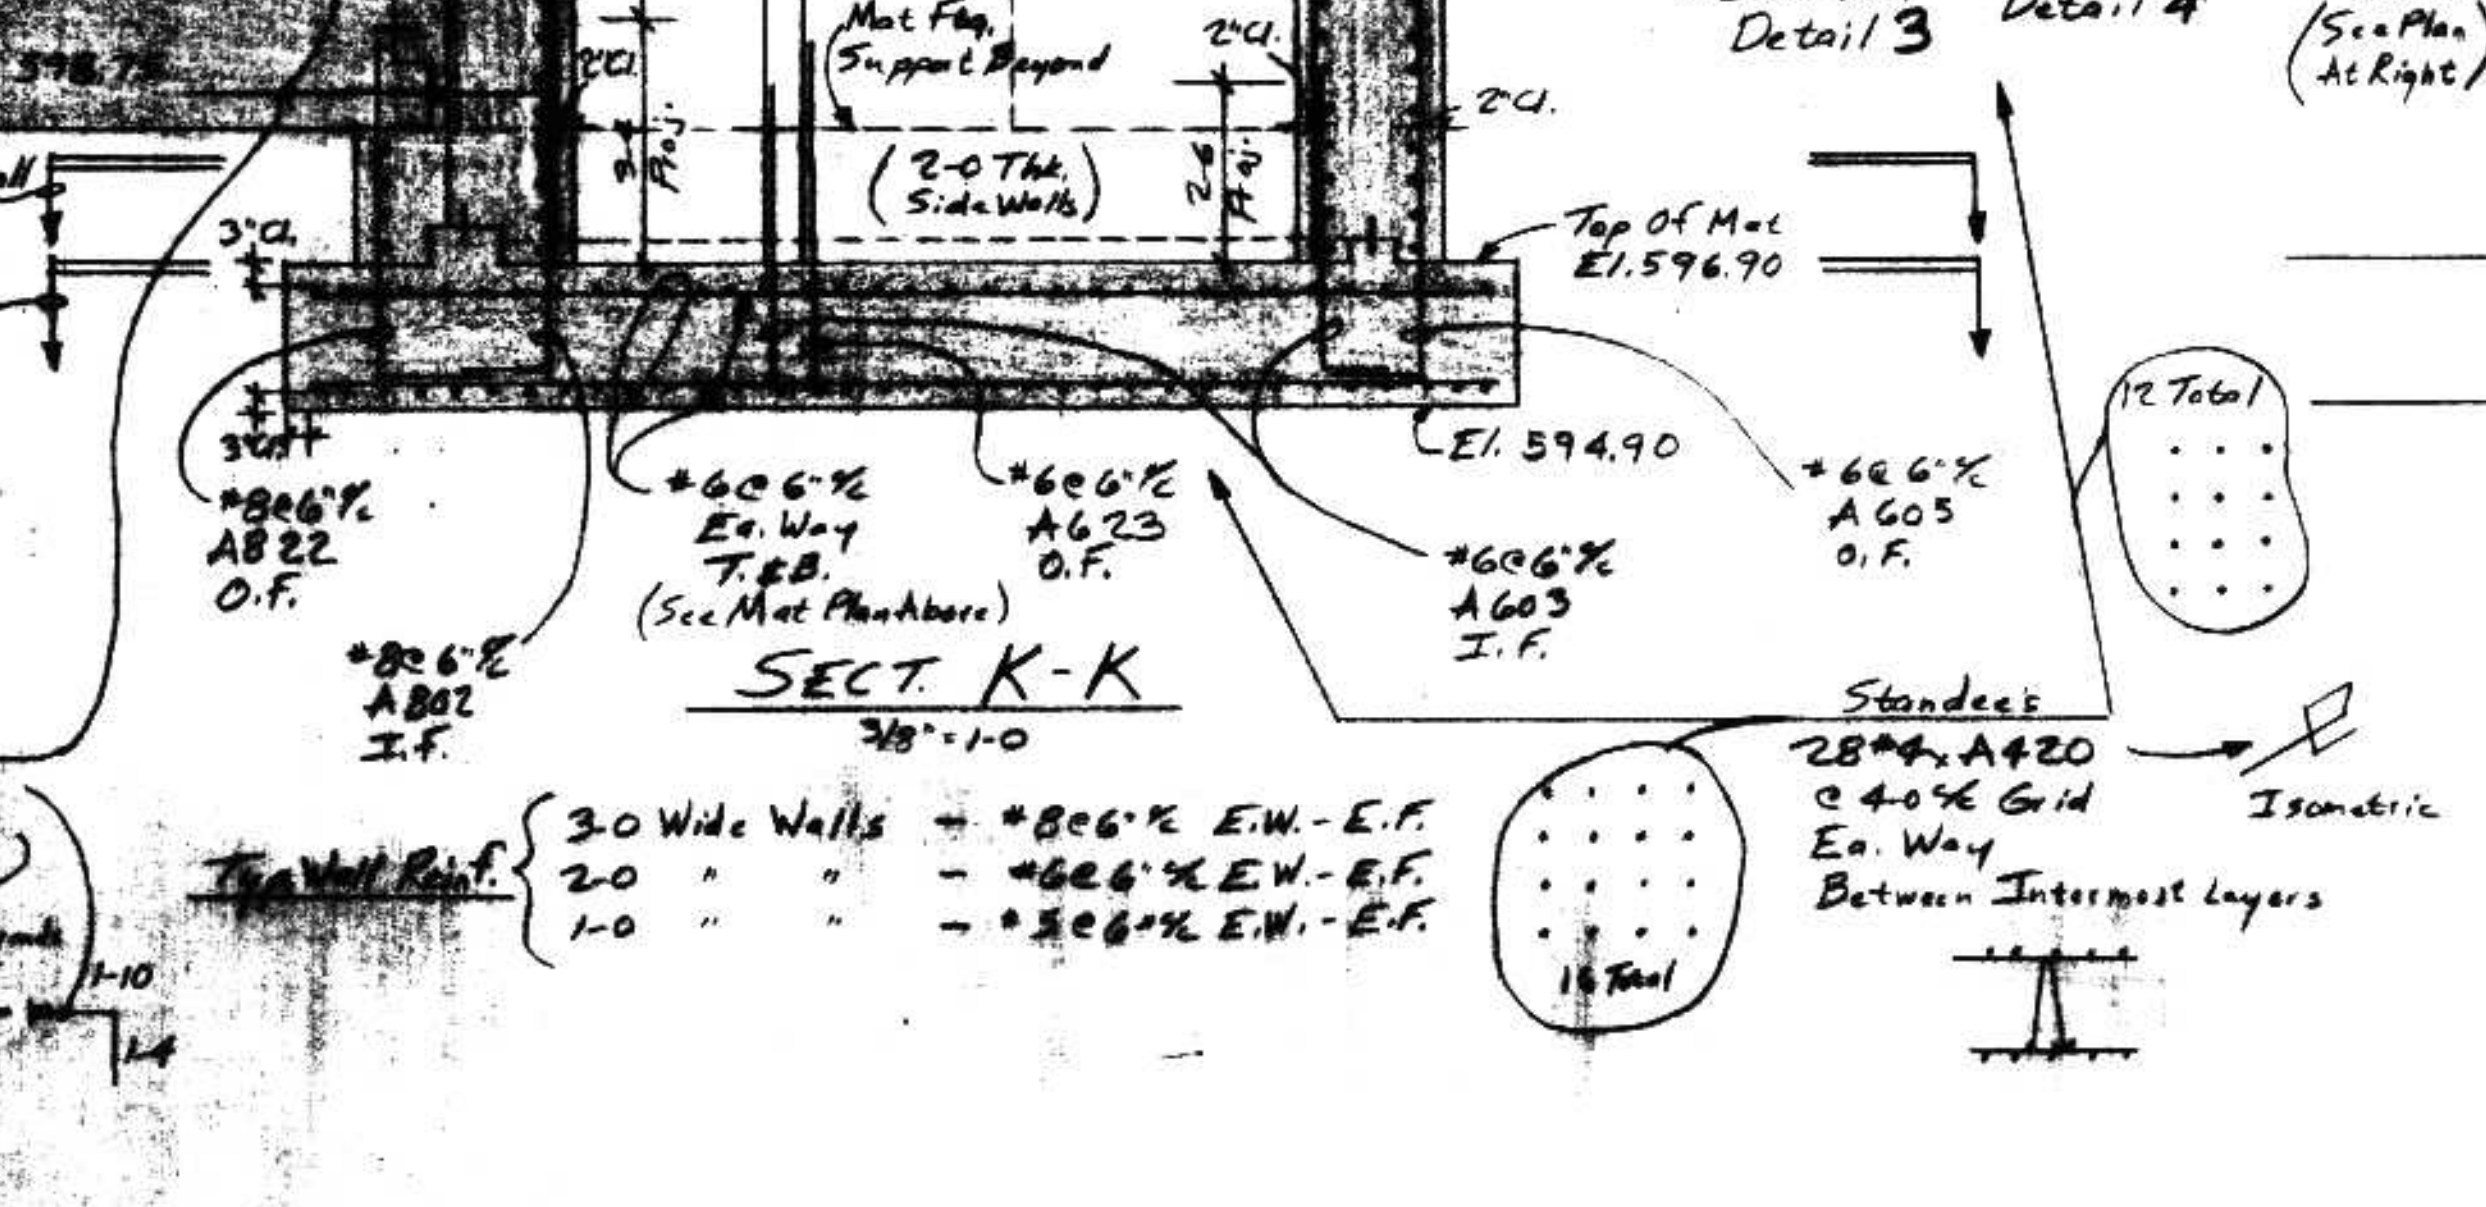 Mat Ftg.
Support Beyond
2"Cl.
2"Cl.
2"Cl.
Detail 3
Detail 4
(See Plan
At Right)
Proj.
(2-0 Thk.
Side Walls)
2-6
Proj.
3"Cl.
Top Of Mat
El. 596.90
3"Cl.
El. 594.90
12 Total
#8@6"%
A822
O.F.
#6@6"%
Ea. Way
T.&B.
(See Mat Plan Above)
#6@6"%
A623
O.F.
#6@6"%
A603
I.F.
#6@6"%
A605
O.F.
#8@6"%
A802
I.F.
SECT. K-K
3/8" = 1-0
Standee's
28#4x A420
@ 4-0% Grid
Ea. Way
Between Intermost Layers
Isometric
Typ. Wall Reinf.
3-0 Wide Walls - #8@6"% E.W.-E.F.
2-0 " " - #6@6"% E.W.-E.F.
1-0 " " - #5@6"% E.W.-E.F.
16 Total
1-10
1-4